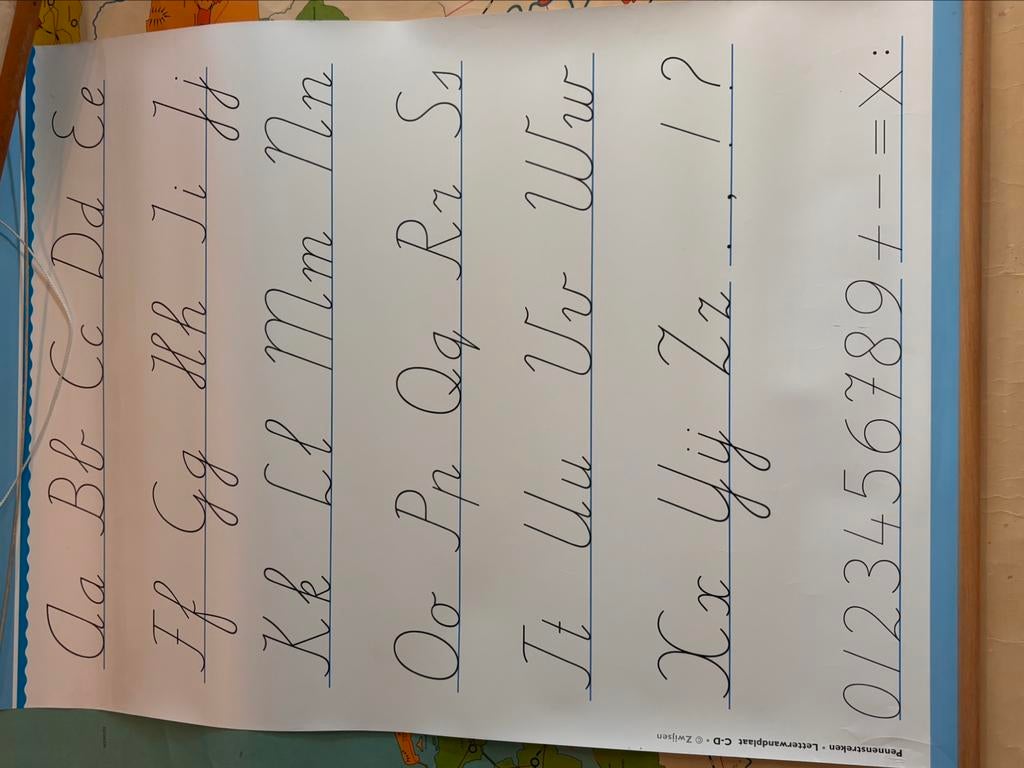 Aa Bb Cc Dd Ee
Ff Gg Hh Ii Jj
Kk Ll Mm Nn
Oo Pp Qq Rr Ss
Tt Uu Vv Ww
Xx Yij Zz . , ! ?
0123456789 + - = x :
Pennenstreken • Letterwandplaat C-D • © Zwijsen